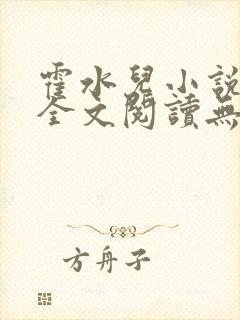 霍水兒小說
全文閱讀無
方舟子